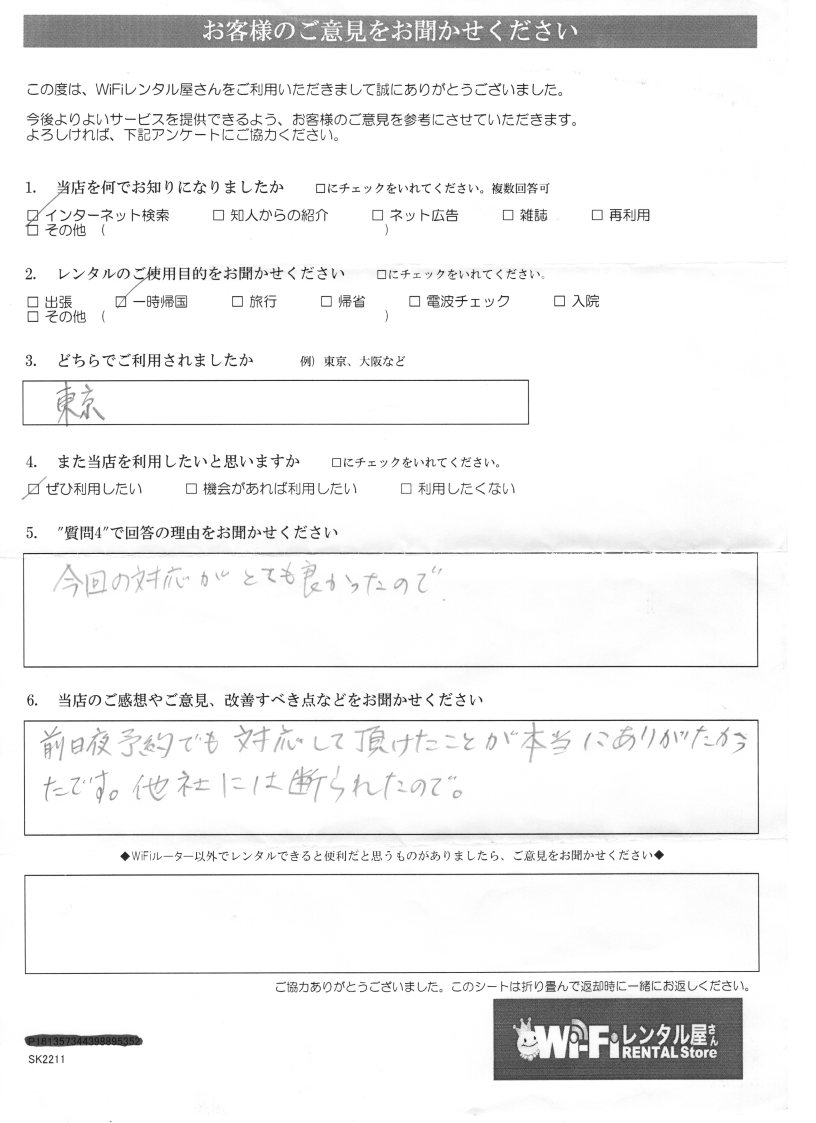 お客様のご意見をお聞かせください
この度は、WiFiレンタル屋さんをご利用いただきまして誠にありがとうございました。
今後よりよいサービスを提供できるよう、お客様のご意見を参考にさせていただきます。
よろしければ、下記アンケートにご協力ください。
1. 当店を何でお知りになりましたか □にチェックをいれてください。複数回答可
☑ インターネット検索 □ 知人からの紹介 □ ネット広告 □ 雑誌 □ 再利用
□ その他 ( )
2. レンタルのご使用目的をお聞かせください □にチェックをいれてください。
□ 出張 ☑ 一時帰国 □ 旅行 □ 帰省 □ 電波チェック □ 入院
□ その他 ( )
3. どちらでご利用されましたか 例) 東京、大阪など
東京
4. また当店を利用したいと思いますか □にチェックをいれてください。
☑ ぜひ利用したい □ 機会があれば利用したい □ 利用したくない
5. ″質問4″で回答の理由をお聞かせください
今回の対応がとても良かったので
6. 当店のご感想やご意見、改善すべき点などをお聞かせください
前日夜予約でも対応して頂けたことが本当にありがたかっ
たです。他社には断られたので。
◆WiFiルーター以外でレンタルできると便利だと思うものがありましたら、ご意見をお聞かせください◆
ご協力ありがとうございました。このシートは折り畳んで返却時に一緒にお返しください。
Wi-Fiレンタル屋さん
RENTAL Store
SK2211